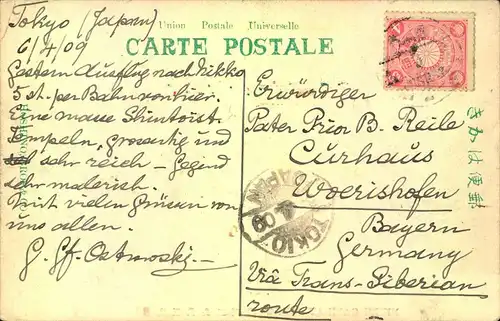 Union Postale Universelle
CARTE POSTALE
Tokyo (Japan)
6/4/09
Gestern Ausflug nach Nikko
5 st. per Bahn von hier.
Eine Shintoist.
Tempeln, grosartig und
sehr reich - Gegend
sehr malerisch.
Mit vielen Grüssen von
uns allen.
G. Gf. Ostrowski
Erwürdiger
Pater Prior B. Reile
Curhaus
Woerishofen
Bayern
Germany
Via Trans-Siberian
route
TOKIO
JAPAN
09
きかは便郵